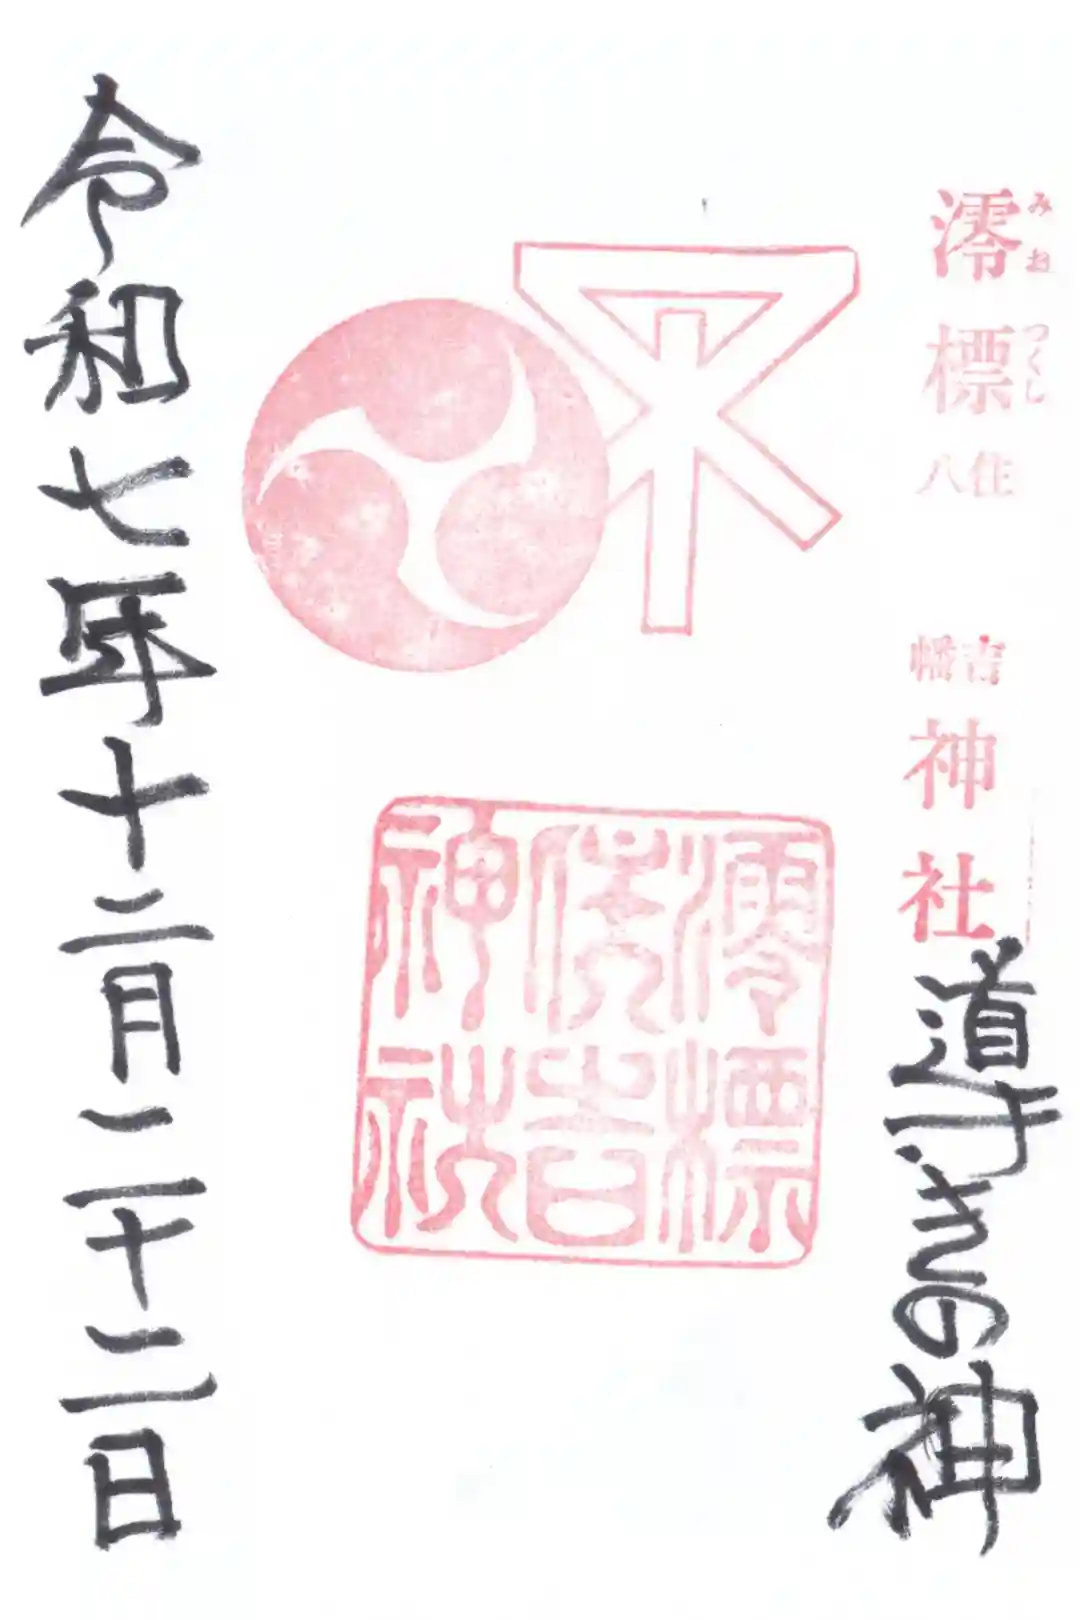 澪標住吉八幡神社
みおつくし
道すきの神
澪標
住吉
神社
令和七年十二月二十二日